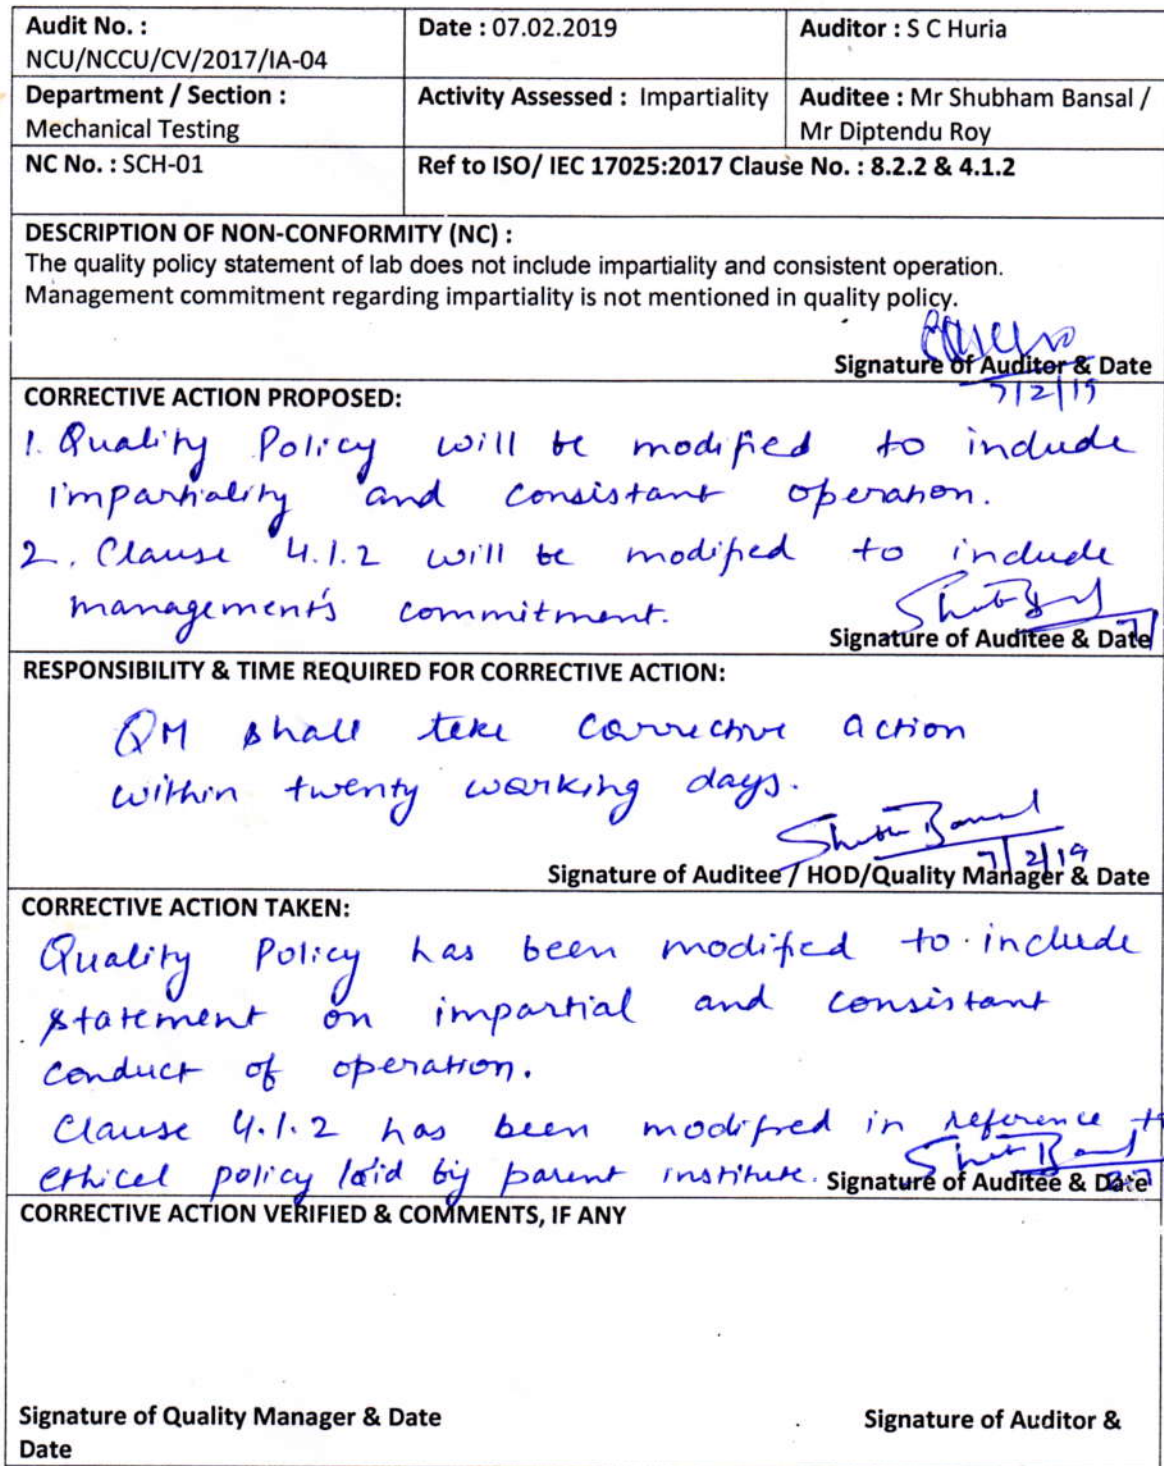 Audit No. :
NCU/NCCU/CV/2017/IA-04
Date : 07.02.2019
Auditor : S C Huria
Department / Section :
Mechanical Testing
Activity Assessed : Impartiality
Auditee : Mr Shubham Bansal /
Mr Diptendu Roy
NC No. : SCH-01
Ref to ISO/ IEC 17025:2017 Clause No. : 8.2.2 & 4.1.2
DESCRIPTION OF NON-CONFORMITY (NC) :
The quality policy statement of lab does not include impartiality and consistent operation.
Management commitment regarding impartiality is not mentioned in quality policy.
Signature of Auditor & Date
7/2/19
CORRECTIVE ACTION PROPOSED:
1. Quality Policy will be modified to include
impartiality and consistant operation.
2. Clause 4.1.2 will be modified to include
management's commitment.
Signature of Auditee & Date
RESPONSIBILITY & TIME REQUIRED FOR CORRECTIVE ACTION:
QM shall take corrective action
within twenty working days.
7/2/19
Signature of Auditee / HOD/Quality Manager & Date
CORRECTIVE ACTION TAKEN:
Quality Policy has been modified to include
statement on impartial and consistant
conduct of operation.
Clause 4.1.2 has been modified in reference to
ethical policy laid by parent institute.
Signature of Auditee & Date
CORRECTIVE ACTION VERIFIED & COMMENTS, IF ANY
Signature of Quality Manager & Date
Signature of Auditor &
Date